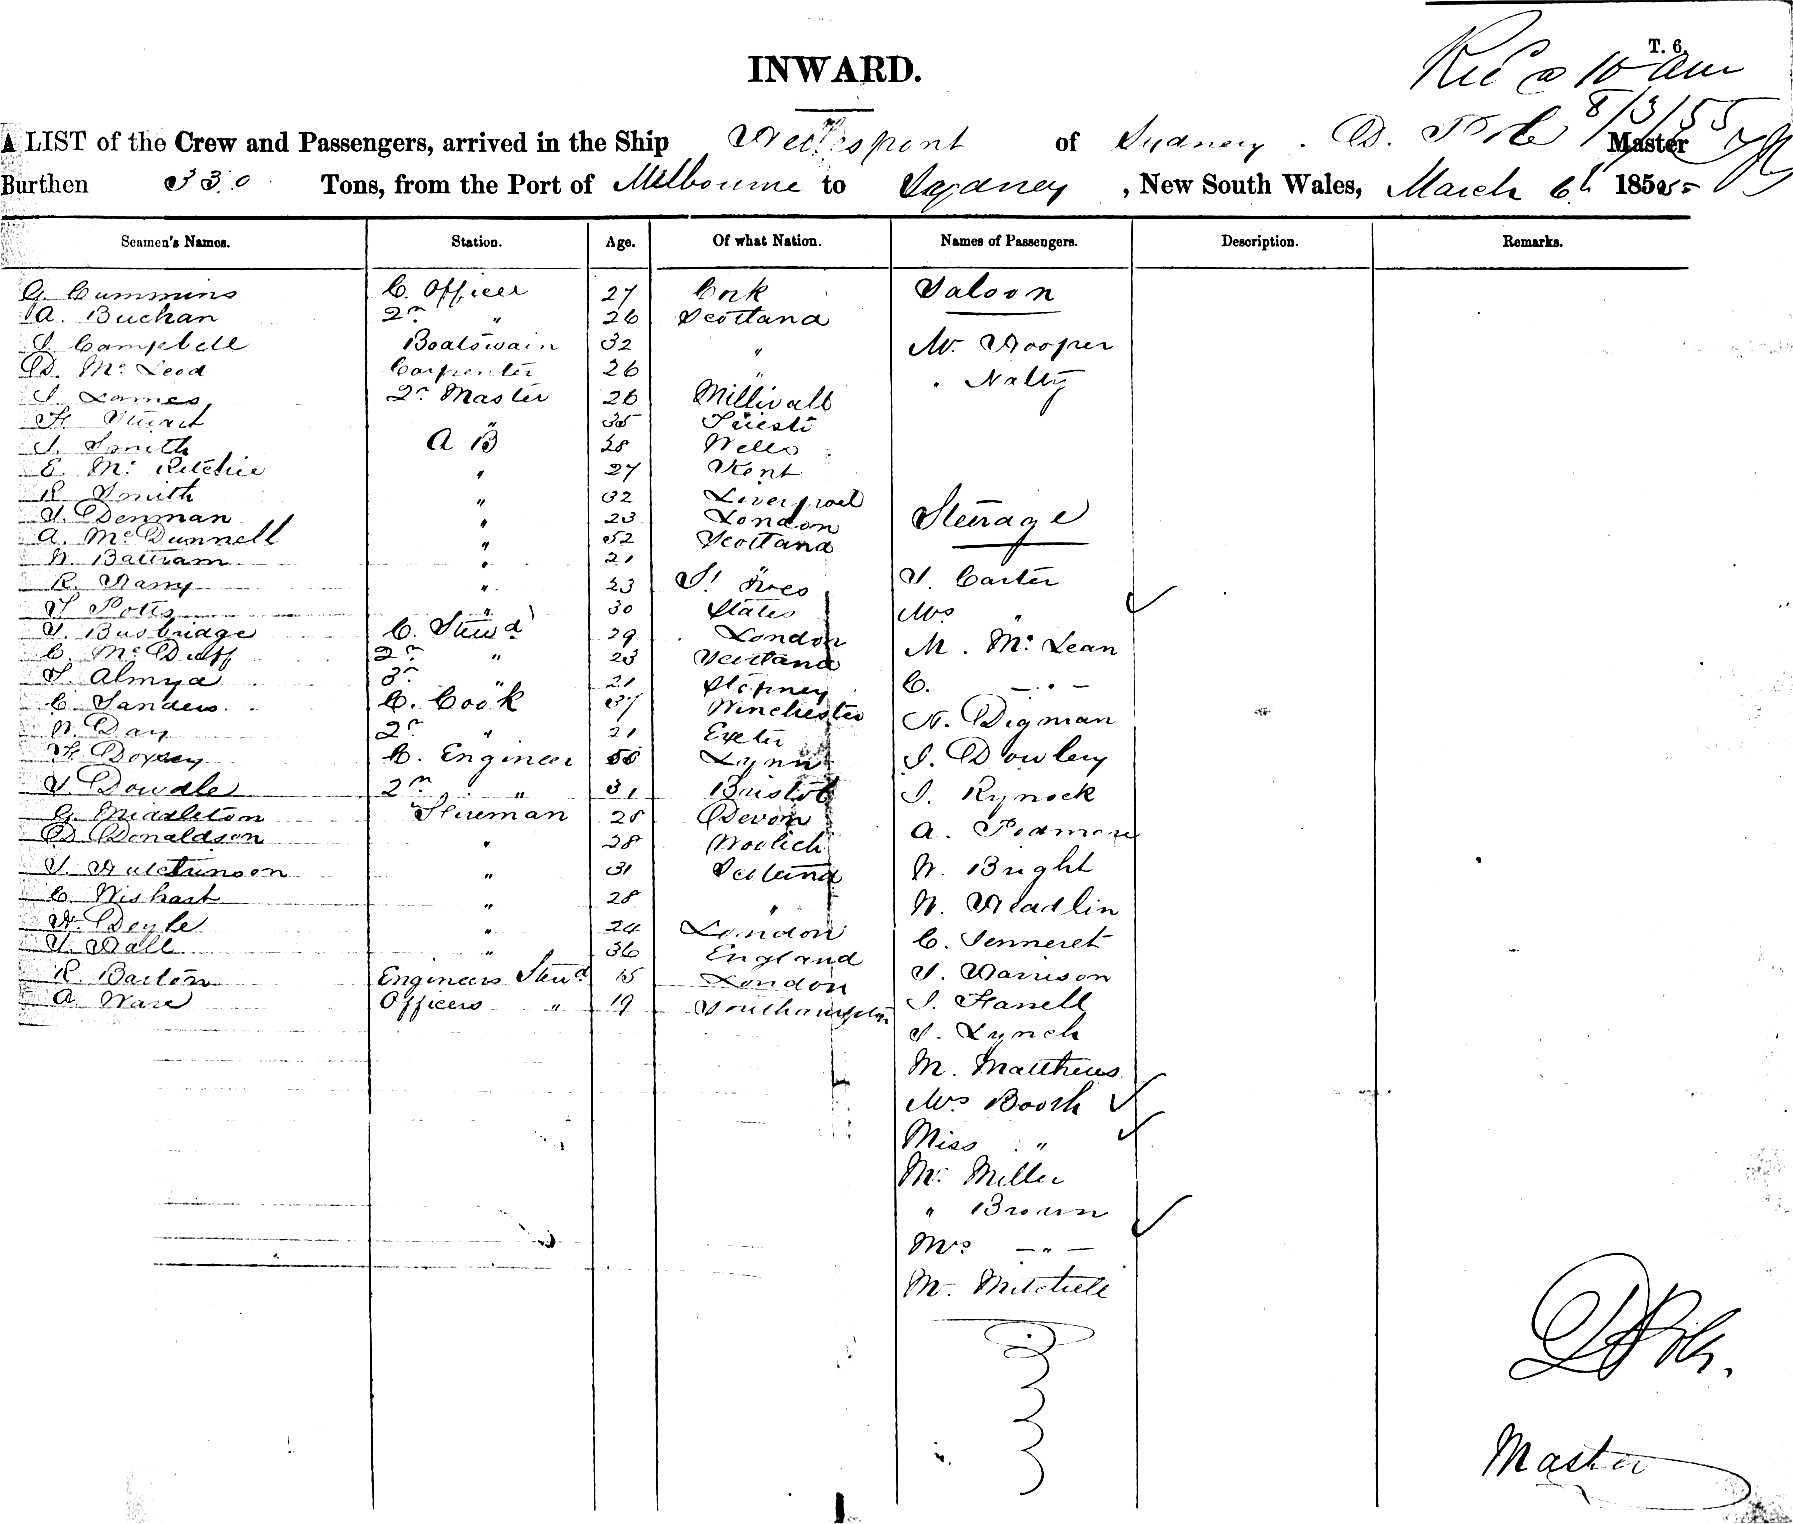 T. 6.
Rec @ 10 am
8/3/55
INWARD.
A LIST of the Crew and Passengers, arrived in the Ship Hellespont of Sydney. D. Master
Burthen 330 Tons, from the Port of Melbourne to Sydney, New South Wales, March 6th 1855
Seamen's Names. Station. Age. Of what Nation. Names of Passengers. Description. Remarks.
G. Cummins C. Officer 27 Cork Saloon
A. Buchan 2n " 26 Scotland
J. Campbell Boatswain 32 " Mr. Hooper
D. McLeod Carpenter 26 " " Nalty
J. James 2n Master 26 Millwall
H. Stuart " 35
J. Smith A B 28 Wells
E. McRitchie " 27 Kent
R. Smith " 32 Liverpool
J. Denman " 23 London Steerage
A. McDunnell " 52 Scotland
W. Battram " 21 "
R. Hamy " 23 St. Ives J. Carter
T. Potts " 30 States Mrs "
J. Busbridge C. Stewd 29 London M. McLean
C. McDuff 2n " 23 Scotland
J. Almya 3n " 21 Stepney C. - " -
C. Sanders C. Cook 37 Winchester
W. Day 2n " 21 Exeter N. Digman
H. Doxey C. Engineer 50 Lynn J. Dowley
J. Dowdle 2n " 31 Bristol J. Rynock
G. Middleton Fireman 28 Devon
D. Donaldson " 28 Woolich A. Podmore
J. Hutchinson " 31 Scotland W. Bright
C. Wishart " 28 " W. Headlin
W. Deyle " 24 London
J. Hall " 36 England C. Jenneret
R. Barton Engineers Stewd 15 London J. Harrison
A. Ware Officers " 19 Southampton J. Farrell
J. Lynch
M. Matthews
Mrs Booth
Miss "
Mr. Miller
" Brown
Mrs - " -
Mr. Mitchell
Master